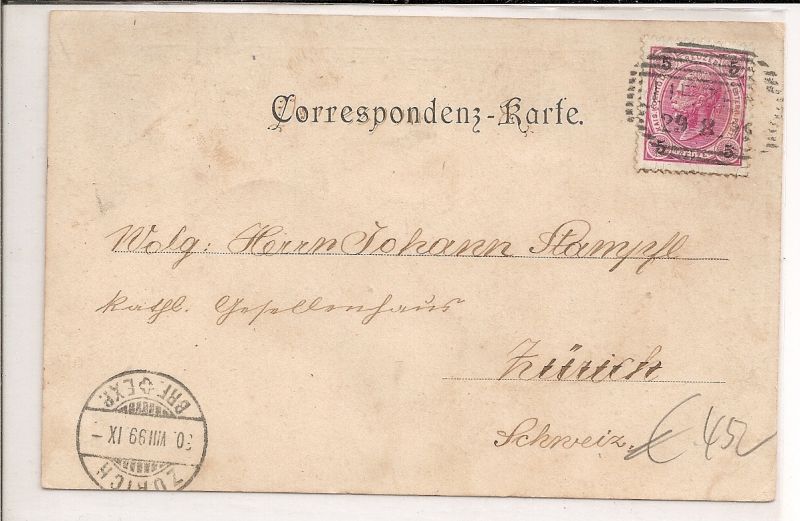 Correspondenz-Karte.
5 5
29 8
5 5
Wolg: Herrn Johann Stampfl
Kathl. Gesellenhaus
Zürich
Schweiz.
€ 452
BRF. EXP.
30. VIII 99. IX -
ZÜRICH